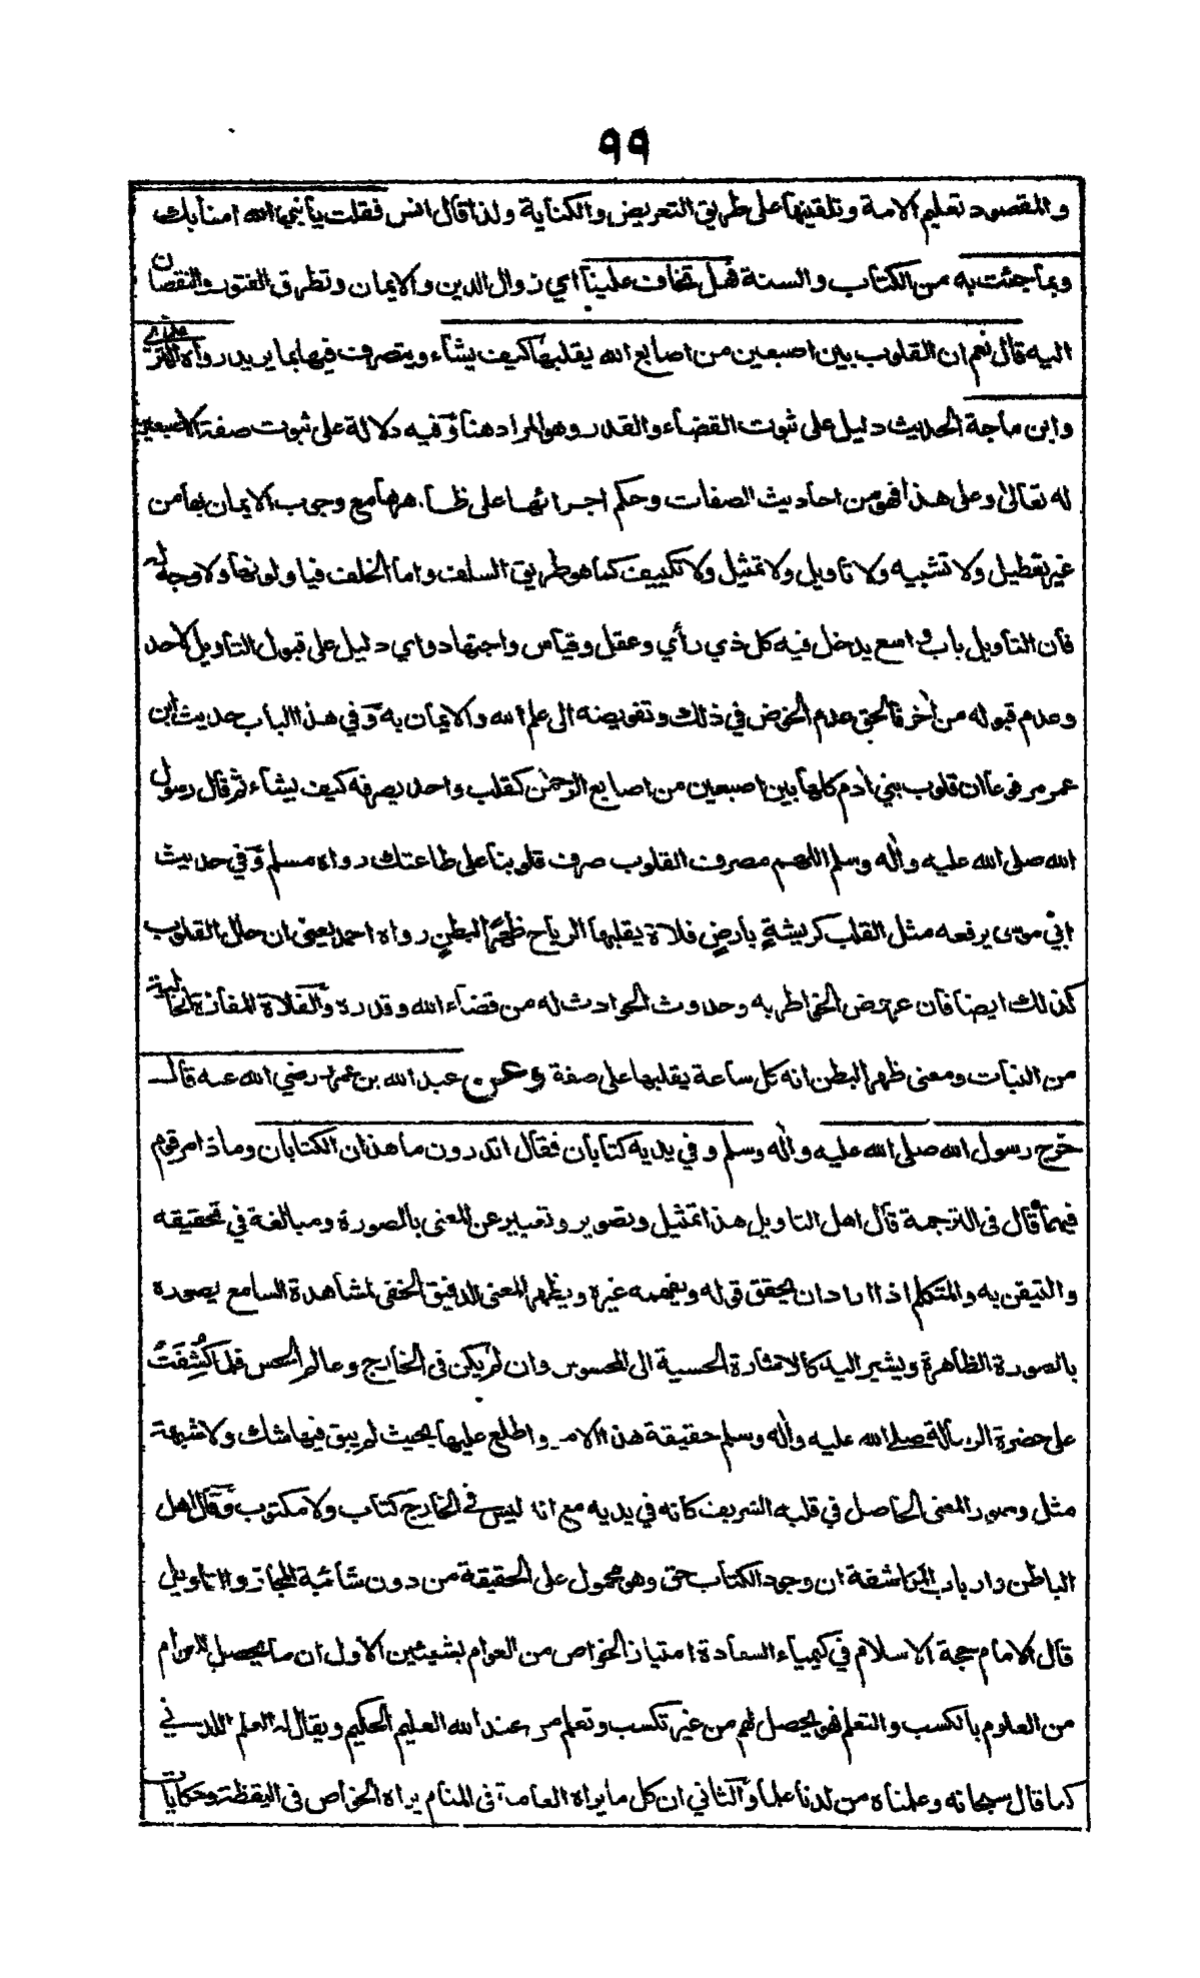 ٩٩
والمقصود تعليم الامة وتلقينها على طريق التعريض والكناية ولذا قال انس فقلت يا نبي الله امنا بك
وبما جئت به من الكتاب والسنة فهل تخاف علينا اي زوال الدين والايمان وتطرق الفتور والنقصان
اليه قال نعم ان القلوب بين اصبعين من اصابع الله يقلبها كيف يشاء ويتصرف فيها بما يريد رواه الترمذي
وابن ماجة الحديث دليل على ثبوت القضاء والقدر وهو المراد هنا وفيه دلالة على ثبوت صفة الاصبعين
له تعالى وعلى هذا فهو من احاديث الصفات وحكم اجرائها على ظاهرها مع وجوب الايمان بها من
غير تعطيل ولا تشبيه ولا تاويل ولا تمثيل ولا تكييف كما هو طريق السلف واما الخلف فياولونها ولا وجه له
فان التاويل باب واسع يدخل فيه كل ذي رأي وعقل وقياس واجتهاد واي دليل على قبول التاويل لاحد
وعدم قبوله من أخر فالحق عدم الخوض في ذلك وتفويضه الى علم الله والايمان به وفي هذا الباب حديث ابن
عمر مرفوعا ان قلوب بني أدم كلها بين اصبعين من اصابع الرحمن كقلب واحد يصرفه كيف يشاء ثم قال رسول
الله صلى الله عليه وأله وسلم اللهم مصرف القلوب صرف قلوبنا على طاعتك رواه مسلم وفي حديث
ابي موسى يرفعه مثل القلب كريشةٍ بارضٍ فلاة يقلبها الرياح ظهرًا لبطنٍ رواه احمد يعني ان حال القلوب
كذلك ايضا فان عروض الخواطر به وحدوث الحوادث له من قضاء الله وقدره والفلاة المفازة الخالية
من النبات ومعنى ظهر البطن انه كل ساعة يقلبها على صفة وعن عبد الله بن عمرو رضي الله عنه قال
خرج رسول الله صلى الله عليه وأله وسلم وفي يديه كتابان فقال اتدرون ما هذان الكتابان وماذا مرقوم
فيهما قال فى الترجمة قال اهل التاويل هذا تمثيل وتصوير وتعبير عن المعنى بالصورة ومبالغة في تحقيقه
والتيقن به والمتكلم اذا اراد ان يحقق قوله ويفهمه غيره ويظهر المعنى الدقيق الخفي لمشاهدة السامع يصوره
بالصورة الظاهرة ويشير اليه كالاشارة الحسية الى المحسوس وان لم يكن فى الخارج وعالم الحس فلما كُشِفَتْ
على حضرة الرسالة صلى الله عليه وأله وسلم حقيقة هذا الامر واطلع عليها بحيث لم يبق فيها شك ولا شبهة
مثل وصور المعنى الحاصل في قلبه الشريف كانه في يديه مع انه ليس في الخارج كتاب ولا مكتوب وقال اهل
الباطن وارباب المكاشفة ان وجود الكتاب حق وهو محمول على الحقيقة من دون شائبة المجاز والتاويل
قال الامام حجة الاسلام في كيمياء السعادة امتياز الخواص من العوام بشيئين الاول ان ما يحصل للعوام
من العلوم بالكسب والتعلم فهو يحصل لهم من غير تكسب وتعلم من عند الله العليم الحكيم ويقال له العلم اللدني
كما قال سبحانه وعلمناه من لدنا علما والثاني ان كل ما يراه العامة فى المنام يراه الخواص فى اليقظة وحكايات